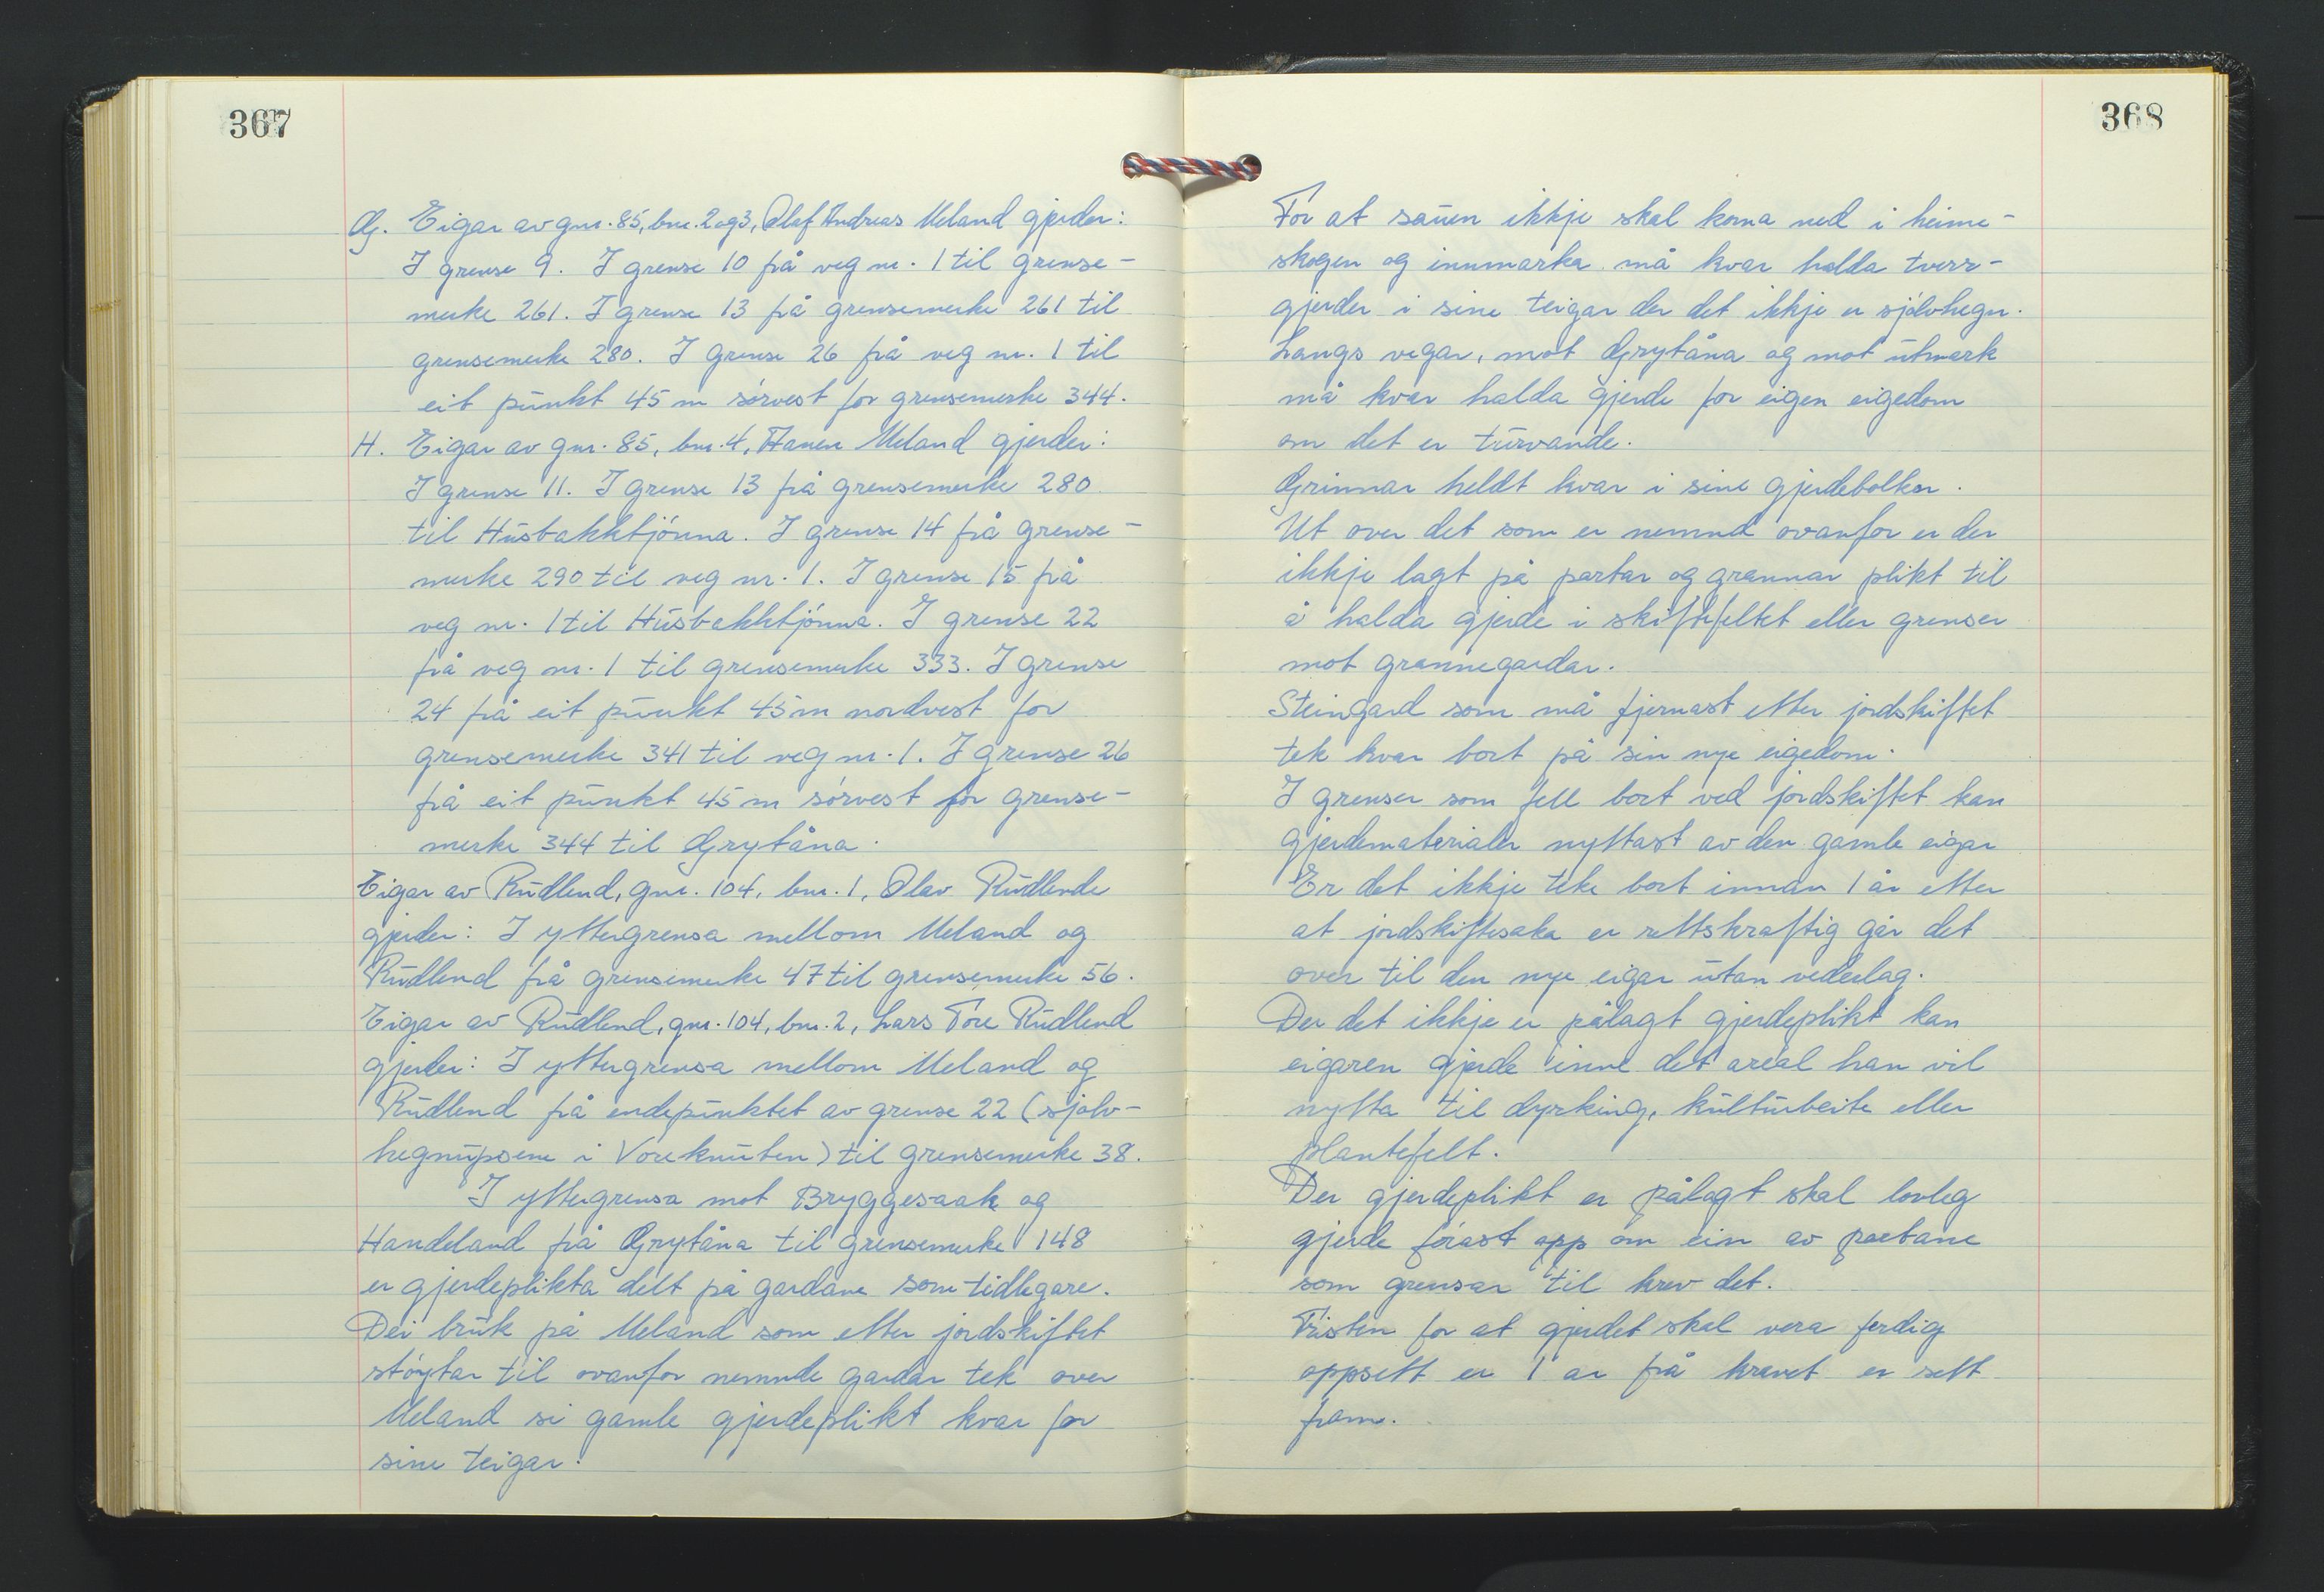 367
G. Eigar av gnr. 85, bnr. 2 og 3, Olaf Andreas Meland gjerder:
I grense 9. I grense 10 frå veg nr. 1 til grense-
merke 261. I grense 13 frå grensemerke 261 til
grensemerke 280. I grense 26 frå veg nr. 1 til
eit punkt 45 m sørvest for grensemerke 344.
H. Eigar av gnr. 85, bnr. 4, Hanen Meland gjerder:
I grense 11. I grense 13 frå grensemerke 280
til Husbakktjønna. I grense 14 frå grense-
merke 290 til veg nr. 1. I grense 15 frå
veg nr. 1 til Husbakktjønna. I grense 22
frå veg nr. 1 til grensemerke 333. I grense
24 frå eit punkt 45 m nordvest for
grensemerke 341 til veg nr. 1. I grense 26
frå eit punkt 45 m sørvest for grense-
merke 344 til Grytåna.
Eigar av Rudlend, gnr. 104, bnr. 1, Olav Rudlende
gjerder: I yttergrensa mellom Meland og
Rudlend frå grensemerke 47 til grensemerke 56.
Eigar av Rudlend, gnr. 104, bnr. 2, Lars Tore Rudlend
gjerder: I yttergrensa mellom Meland og
Rudlend frå endepunktet av grense 22 (sjølv-
hegnupsene i Voreknuten) til grensemerke 38.
I yttergrensa mot Bryggesaak og
Handeland frå Grytåna til grensemerke 148
er gjerdeplikta delt på gardane som tidlegare.
Dei bruk på Meland som etter jordskiftet
støytar til ovanfor nemnde gardar tek over
Meland si gamle gjerdeplikt kvar for
sine teigar.
368
For at sauen ikkje skal koma ned i heime-
skogen og innmarka må kvar halda tverr-
gjerder i sine teigar der det ikkje er sjølvhegn.
Langs vegar, mot Grytåna og mot utmark
må kvar halda gjerde for eigen eigedom
om det er turvande.
Grinnar heldt kvar i sine gjerdebolkar.
Ut over det som er nemnd ovanfor er der
ikkje lagt på partar og grannar plikt til
å halda gjerde i skiftefeltet eller grenser
mot grannegardar.
Steingard som må fjernast etter jordskiftet
tek kvar bort på sin nye eigedom.
I grenser som fell bort ved jordskiftet kan
gjerdematerialer nyttast av den gamle eigar
Er det ikkje teke bort innan 1 år etter
at jordskiftesaka er rettskraftig går det
over til den nye eigar utan vederlag.
Der det ikkje er pålagt gjerdeplikt kan
eigaren gjerde inne det areal han vil
nytta til dyrking, kulturbeite eller
plantefelt.
Der gjerdeplikt er pålagt skal lovleg
gjerde førast opp om ein av partane
som grensar til krev det.
Fristen for at gjerdet skal vera ferdig
oppsett er 1 ar frå kravet er sett
fram.